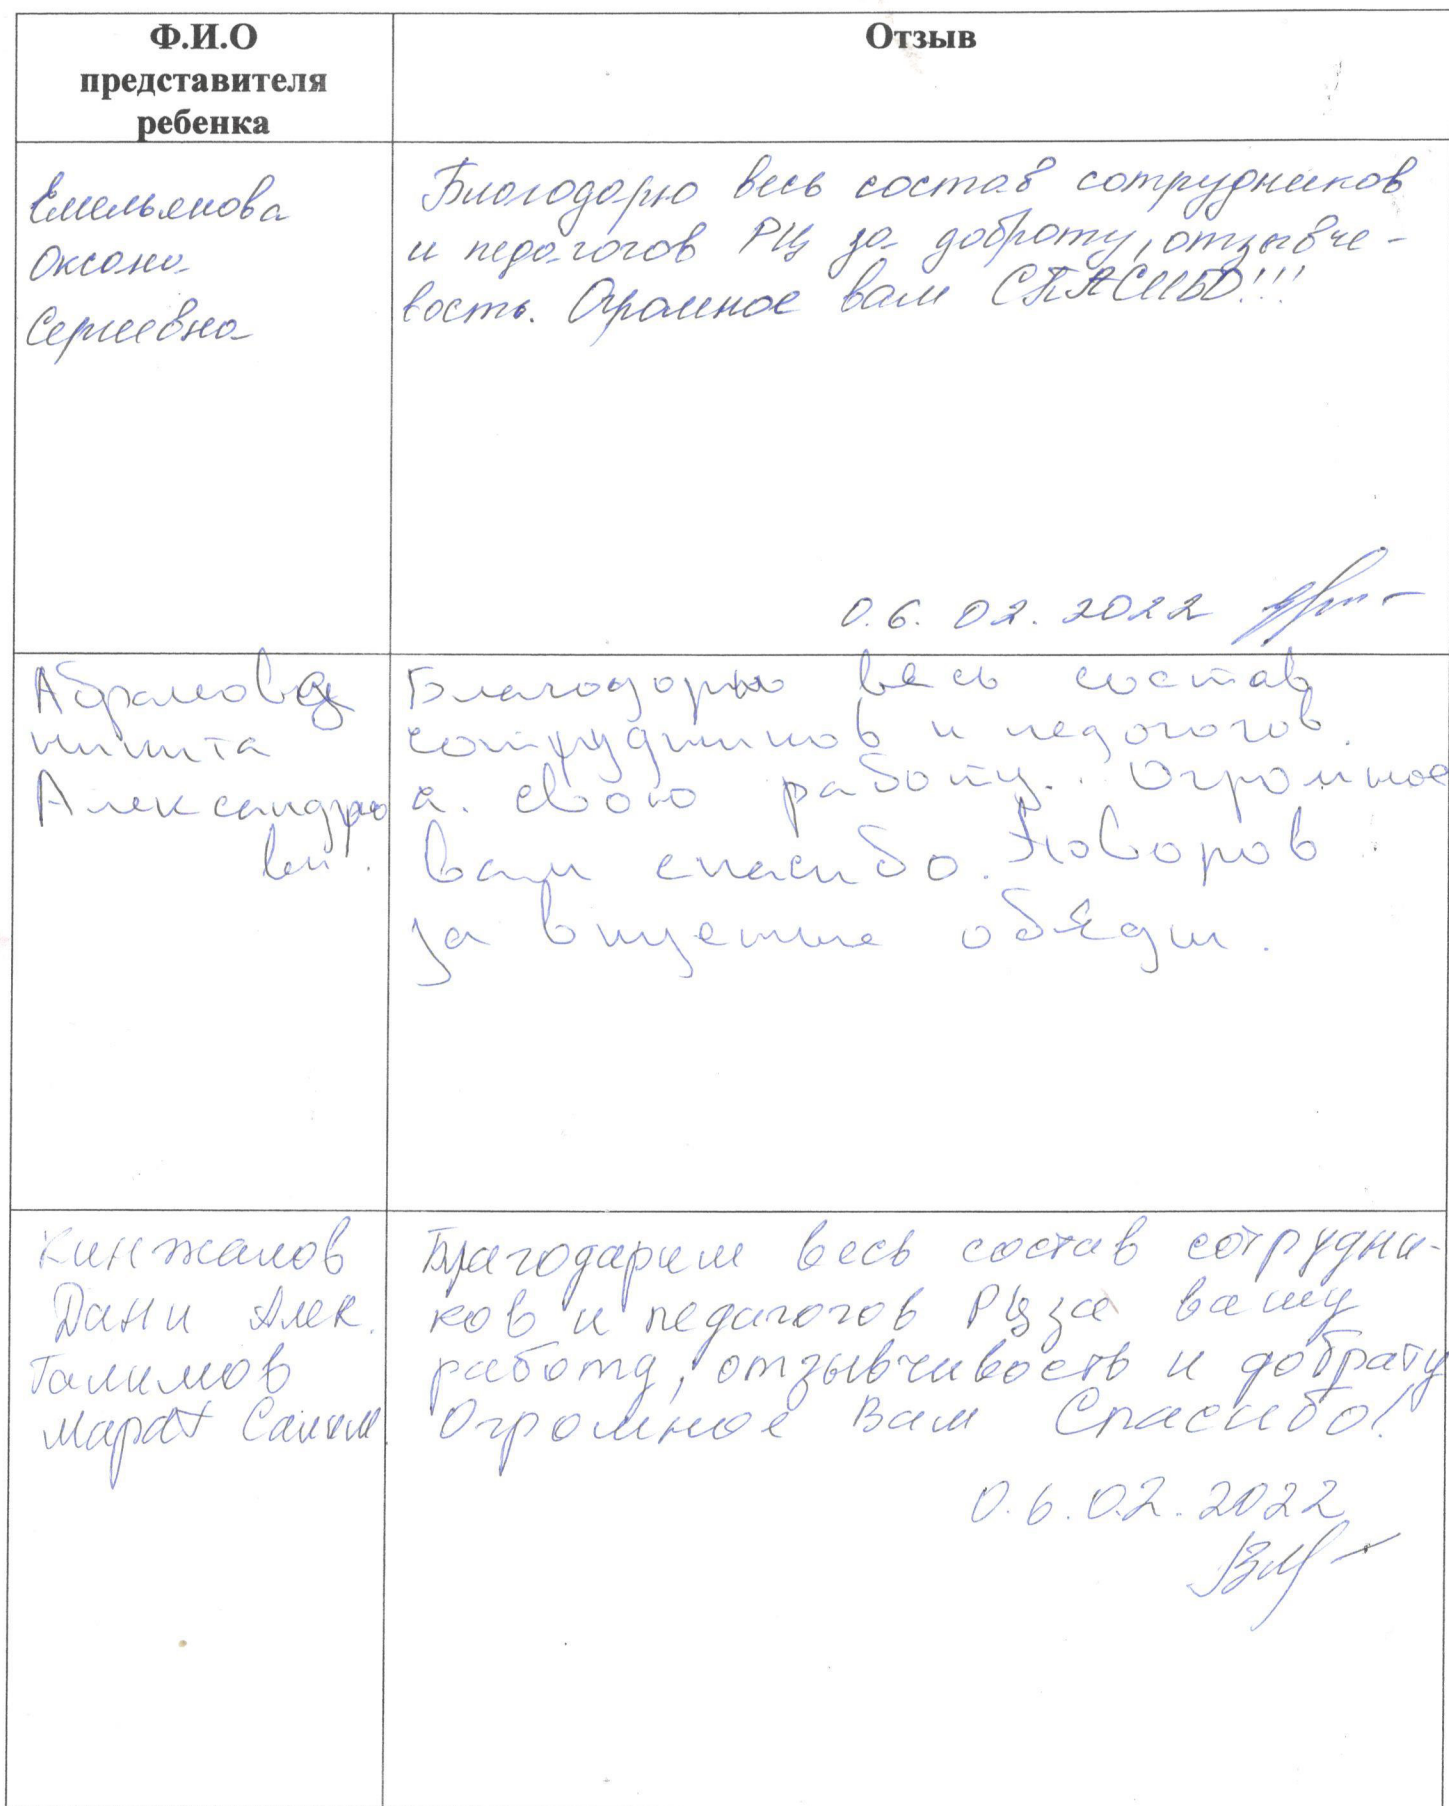 Ф.И.О
представителя
ребенка
Отзыв
Емельянова
Оксана
Сергеевна
Благодарю весь состав сотрудников
и педагогов РЦ за доброту, отзывче-
вость. Огромное вам СПАСИБО!!!
0.6. 02. 2022
Абрамов
никита
Александро
вич.
Благодорю весь состав
сотрудников и педогогов.
а. свою работу. Огромное
вам спасибо. Поворов
за вкусные обЯды.
Кинжалов
Дани Алек.
Галимов
Марат Салим.
Благодарим весь состав сотрудни-
ков и педагогов РЦ за вашу
работу, отзывчивость и доброту
Огромное Вам Спасибо!
0.6.02.2022